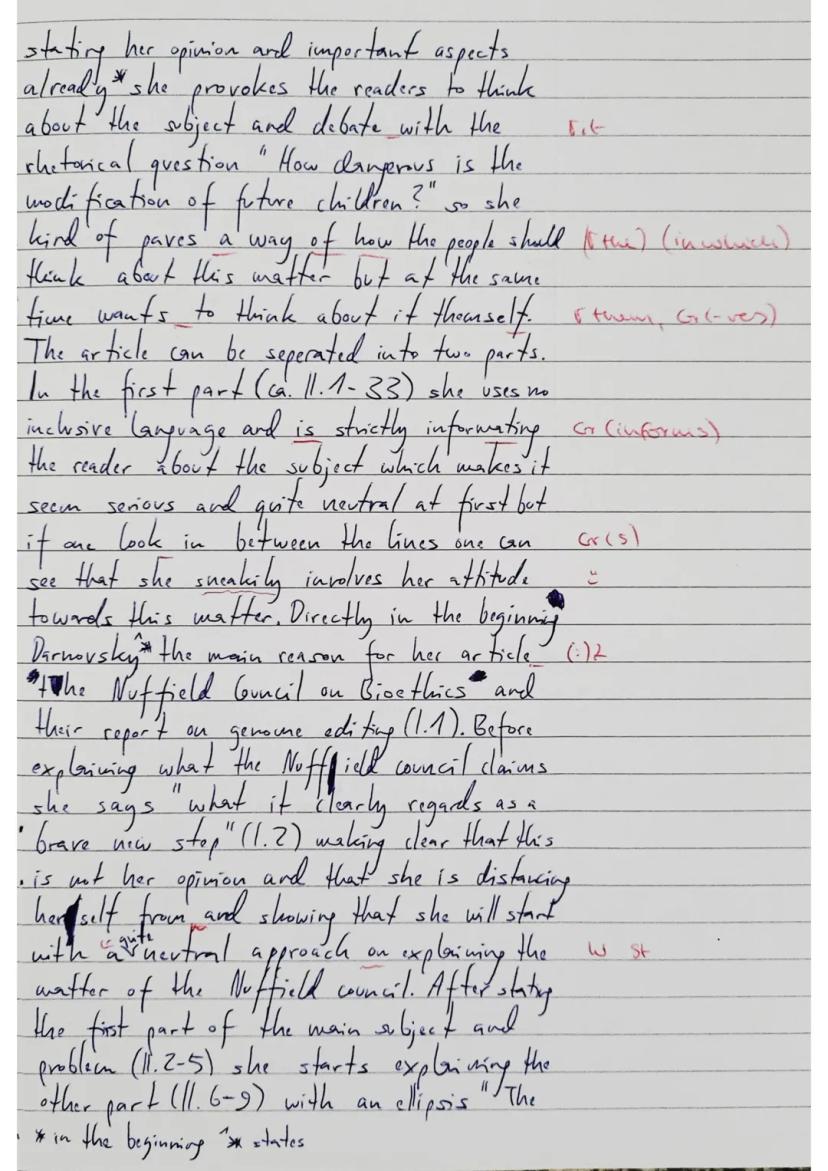 stating her opinion and important aspects
already* she provokes the readers to think
about the subject and debate with the
rhetorical question "How dangerous is the
modification of future children?" so she
kind of paves a way of how the people should (the) (in which)
think about this matter but at the same
time wants to think about it themself. them, Gr(-ves)
The article can be seperated into two parts.
In the first part (ca. ll. 1-33) she uses no
inclusive language and is strictly informating Gr (informs)
the reader about the subject which makes it
seem serious and quite neutral at first but
if one look in between the lines one can Gr(s)
see that she sneakily involves her attitude
towards this matter. Directly in the beginning
Darnovsky** the main reason for her article (:)Z
"The Nuffield Council on Bioethics" and
their report on genome editing (l.1). Before
explaining what the Nuffield council claims
she says "what it clearly regards as a
brave new step" (l.2) making clear that this
is not her opinion and that she is distancing
herself from and showing that she will start
with a quite neutral approach on explaining the W St
matter of the Nuffield council. After stating
the first part of the main subject and
problem (ll. 2-5) she starts explaining the
other part (ll. 6-9) with an ellipsis "The
* in the beginning ** states